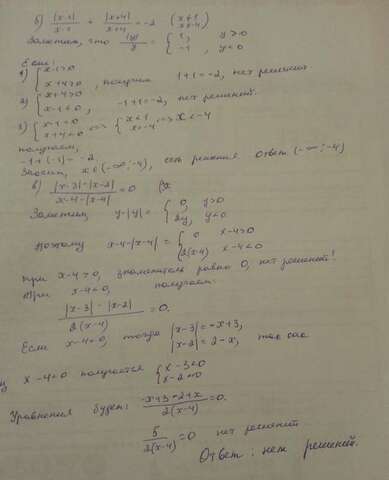 б) |x-1|/x-1 + |x+4|/x+4 = -2 (x≠1 x≠-4)
Заметим, что |y|/y = { 1, y>0 -1, y<0
Если:
1) { x-1>0 x+4>0, получим 1+1=-2, нет решения
2) { x+4>0 x-1<0, -1+1=-2, нет решений.
3) { x-1<0 x+4<0 <=> { x<1 x<-4 => x<-4
получаем,
-1+(-1)=-2
Значит, x∈(-∞;-4), есть решения Ответ (-∞;-4)
в) |x-3|-|x-2|/x-4-|x-4| = 0
Заметим, y-|y| = { 0, y>0 2y, y<0
Поэтому x-4-|x-4| = { 0 x-4>0 2(x-4) x-4<0
при x-4>0, знаменатель равно 0, нет решений!
При x-4<0, получаем:
|x-3|-|x-2|/2(x-4) = 0.
Если x-4<0, тогда |x-3|=-x+3, |x-2|=2-x, так как
из x-4<0 получается { x-3<0 x-2<0
Уравнения будет: -x+3-2+x/2(x-4) = 0.
5/2(x-4) = 0 нет решений
Ответ: нет решений.